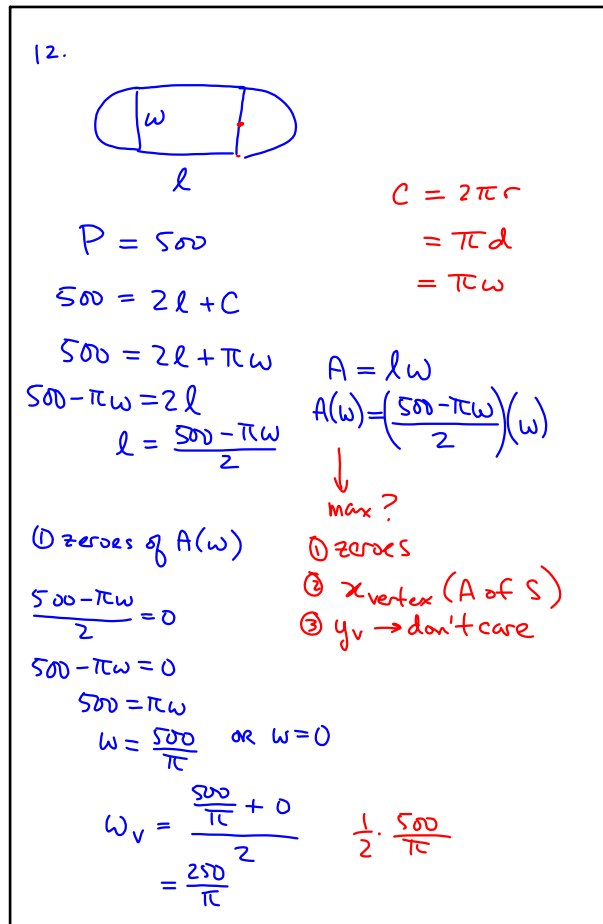 12.
w
l
C = 2πr
= πd
= πw
P = 500
500 = 2l + C
500 = 2l + πw
500 - πw = 2l
l = \frac{500 - πw}{2}
A = lw
A(w) = (\frac{500 - πw}{2})(w)
↓
max?
① zeroes
② x_{vertex} (A of S)
③ y_v → don't care
① zeroes of A(w)
\frac{500 - πw}{2} = 0
500 - πw = 0
500 = πw
w = \frac{500}{π} OR w = 0
w_v = \frac{\frac{500}{π} + 0}{2}
= \frac{250}{π}
\frac{1}{2} · \frac{500}{π}